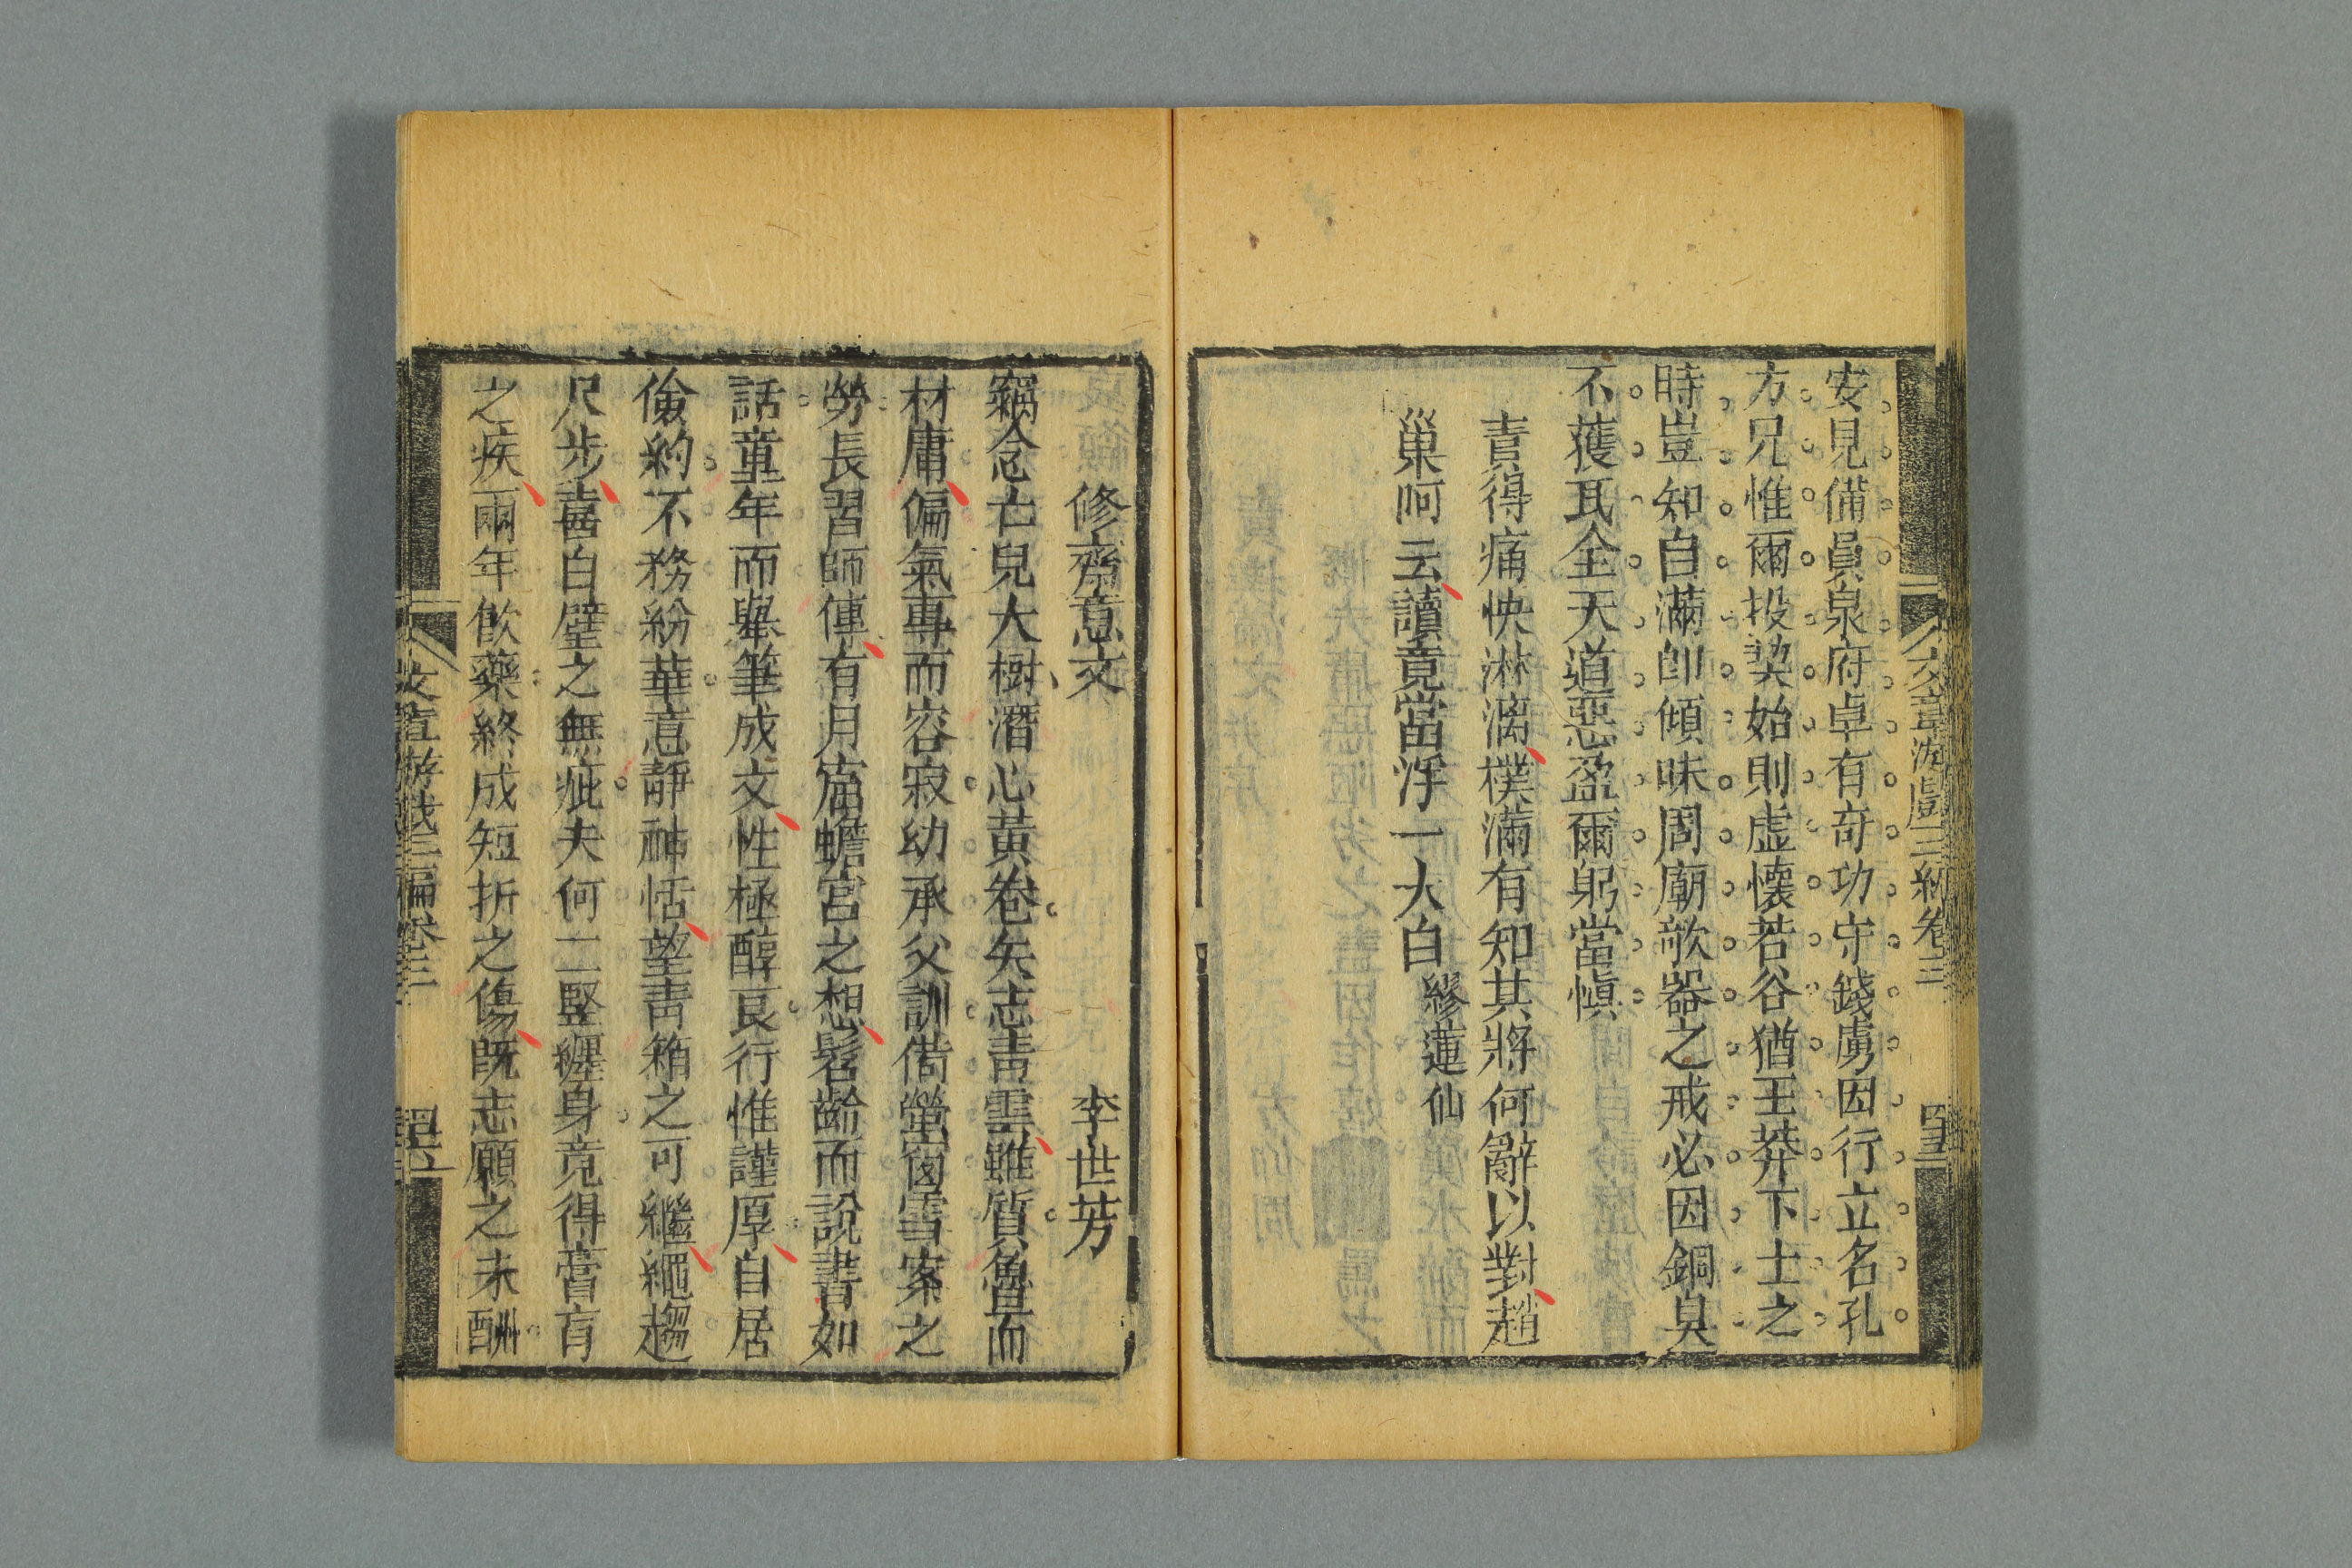 安見備員泉府卓有奇功守錢虜因行立名孔
方兄惟爾投契始則虛懷若谷猶王莽下士之
時豈知白滿卽傾昧周廟欹器之戒必因銅臭
不獲瓦全天道惡盈爾躬當愼
責得痛快淋漓樸滿有知其將何辭以對趙
巢呵云讀竟當浮一大白 繆蓮仙
修齋意文 李世芳
竊念亡兒大樹潛心黃卷矢志靑雲雖質魯而
材庸偏氣專而容寂幼承父訓借螢囪雪案之
勞長習師傳有月窟蟾宮之想髫齡而說書如
話童年而舉筆成文性極醇良行惟謹厚自居
儉約不務紛華意靜神恬望靑箱之可繼繩趨
尺步喜白璧之無疵夫何二竪纏身竟得膏肓
之疾兩年飮藥終成短折之傷旣志願之未酬
文章游戲三編卷三